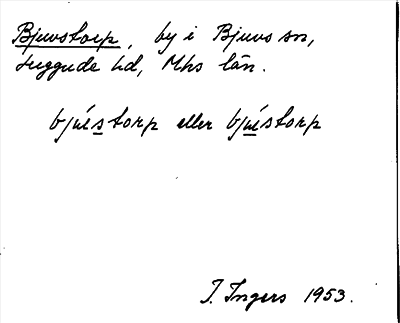 Bjuvstorp, by i Bjuvs sn,
Luggude hd, Mhs län.
bjúestorp eller bjuéstorp
I. Ingers 1953.